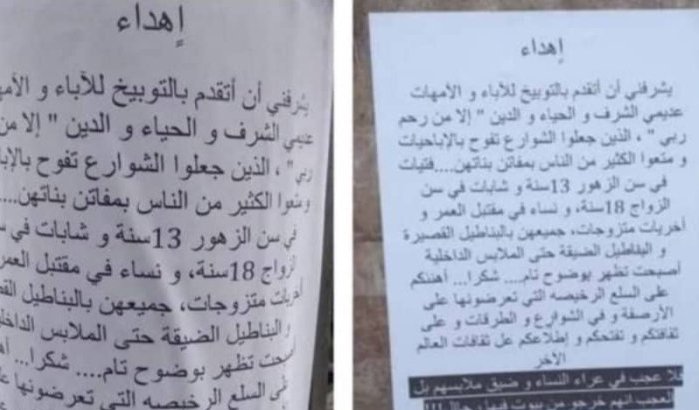 إهداء
يشرفني أن أتقدم بالتوبيخ للآباء و الأم
عديمي الشرف و الحياء و الدين " إلا من
ربي" ، الذين جعلوا الشوارع تفوح بالإبا
ومتعوا الكثير من الناس بمفاتن بناتهن....
في سن الزهور 13سنة و شابات في س
الزواج 18سنة، و نساء في مقتبل العمر
أخريات متزوجات، جميعهن بالبناطيل القص
والبناطيل الضيقة حتى الملابس الداخل
أصبحت تظهر بوضوح تام.... شكرا... أه
على السلع الرخيصه التي تعرضونها عل
إهداء
يشرفني أن أتقدم بالتوبيخ للآباء و الأمهات
عديمي الشرف و الحياء و الدين " إلا من رحم
ربي" ، الذين جعلوا الشوارع تفوح بالإباحيات
و متعوا الكثير من الناس بمفاتن بناتهن....فتيات
في سن الزهور 13سنة و شابات في سن
الزواج 18سنة، و نساء في مقتبل العمر و
أخريات متزوجات، جميعهن بالبناطيل القصيرة
و البناطيل الضيقة حتى الملابس الداخلية
أصبحت تظهر بوضوح تام.... شكرا... أهنئكم
على السلع الرخيصه التي تعرضونها على
الأرصفة و في الشوارع و الطرقات و على
ثقافتكم و تفتحكم و إطلاعكم عل ثقافات العالم
الآخر
فلا عجب في عراء النساء و ضيق ملابسهم بل
العجب انهم خرجو من بيوت فيها رجال!!!